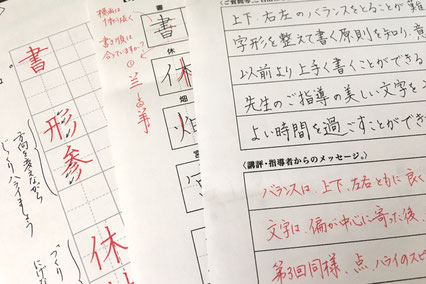 書
形
参
休
方向を変えながら
じっくりハライましょう
づくり
書き順は
合っていますか？
書
書
休
休
畑
畑
宮
上下、右左のバランスをとることが
字形を整えて書く原則を知り、意
以前より上手く書くことができる
先生のご指導の美しい文字を
よい時間を過ごすことができ
〈講評・指導者からのメッセージ。〉
バランスは、上下、左右ともに良く
文字は、偏が中心に寄った後、
第3回同様、点、ハライのスピ